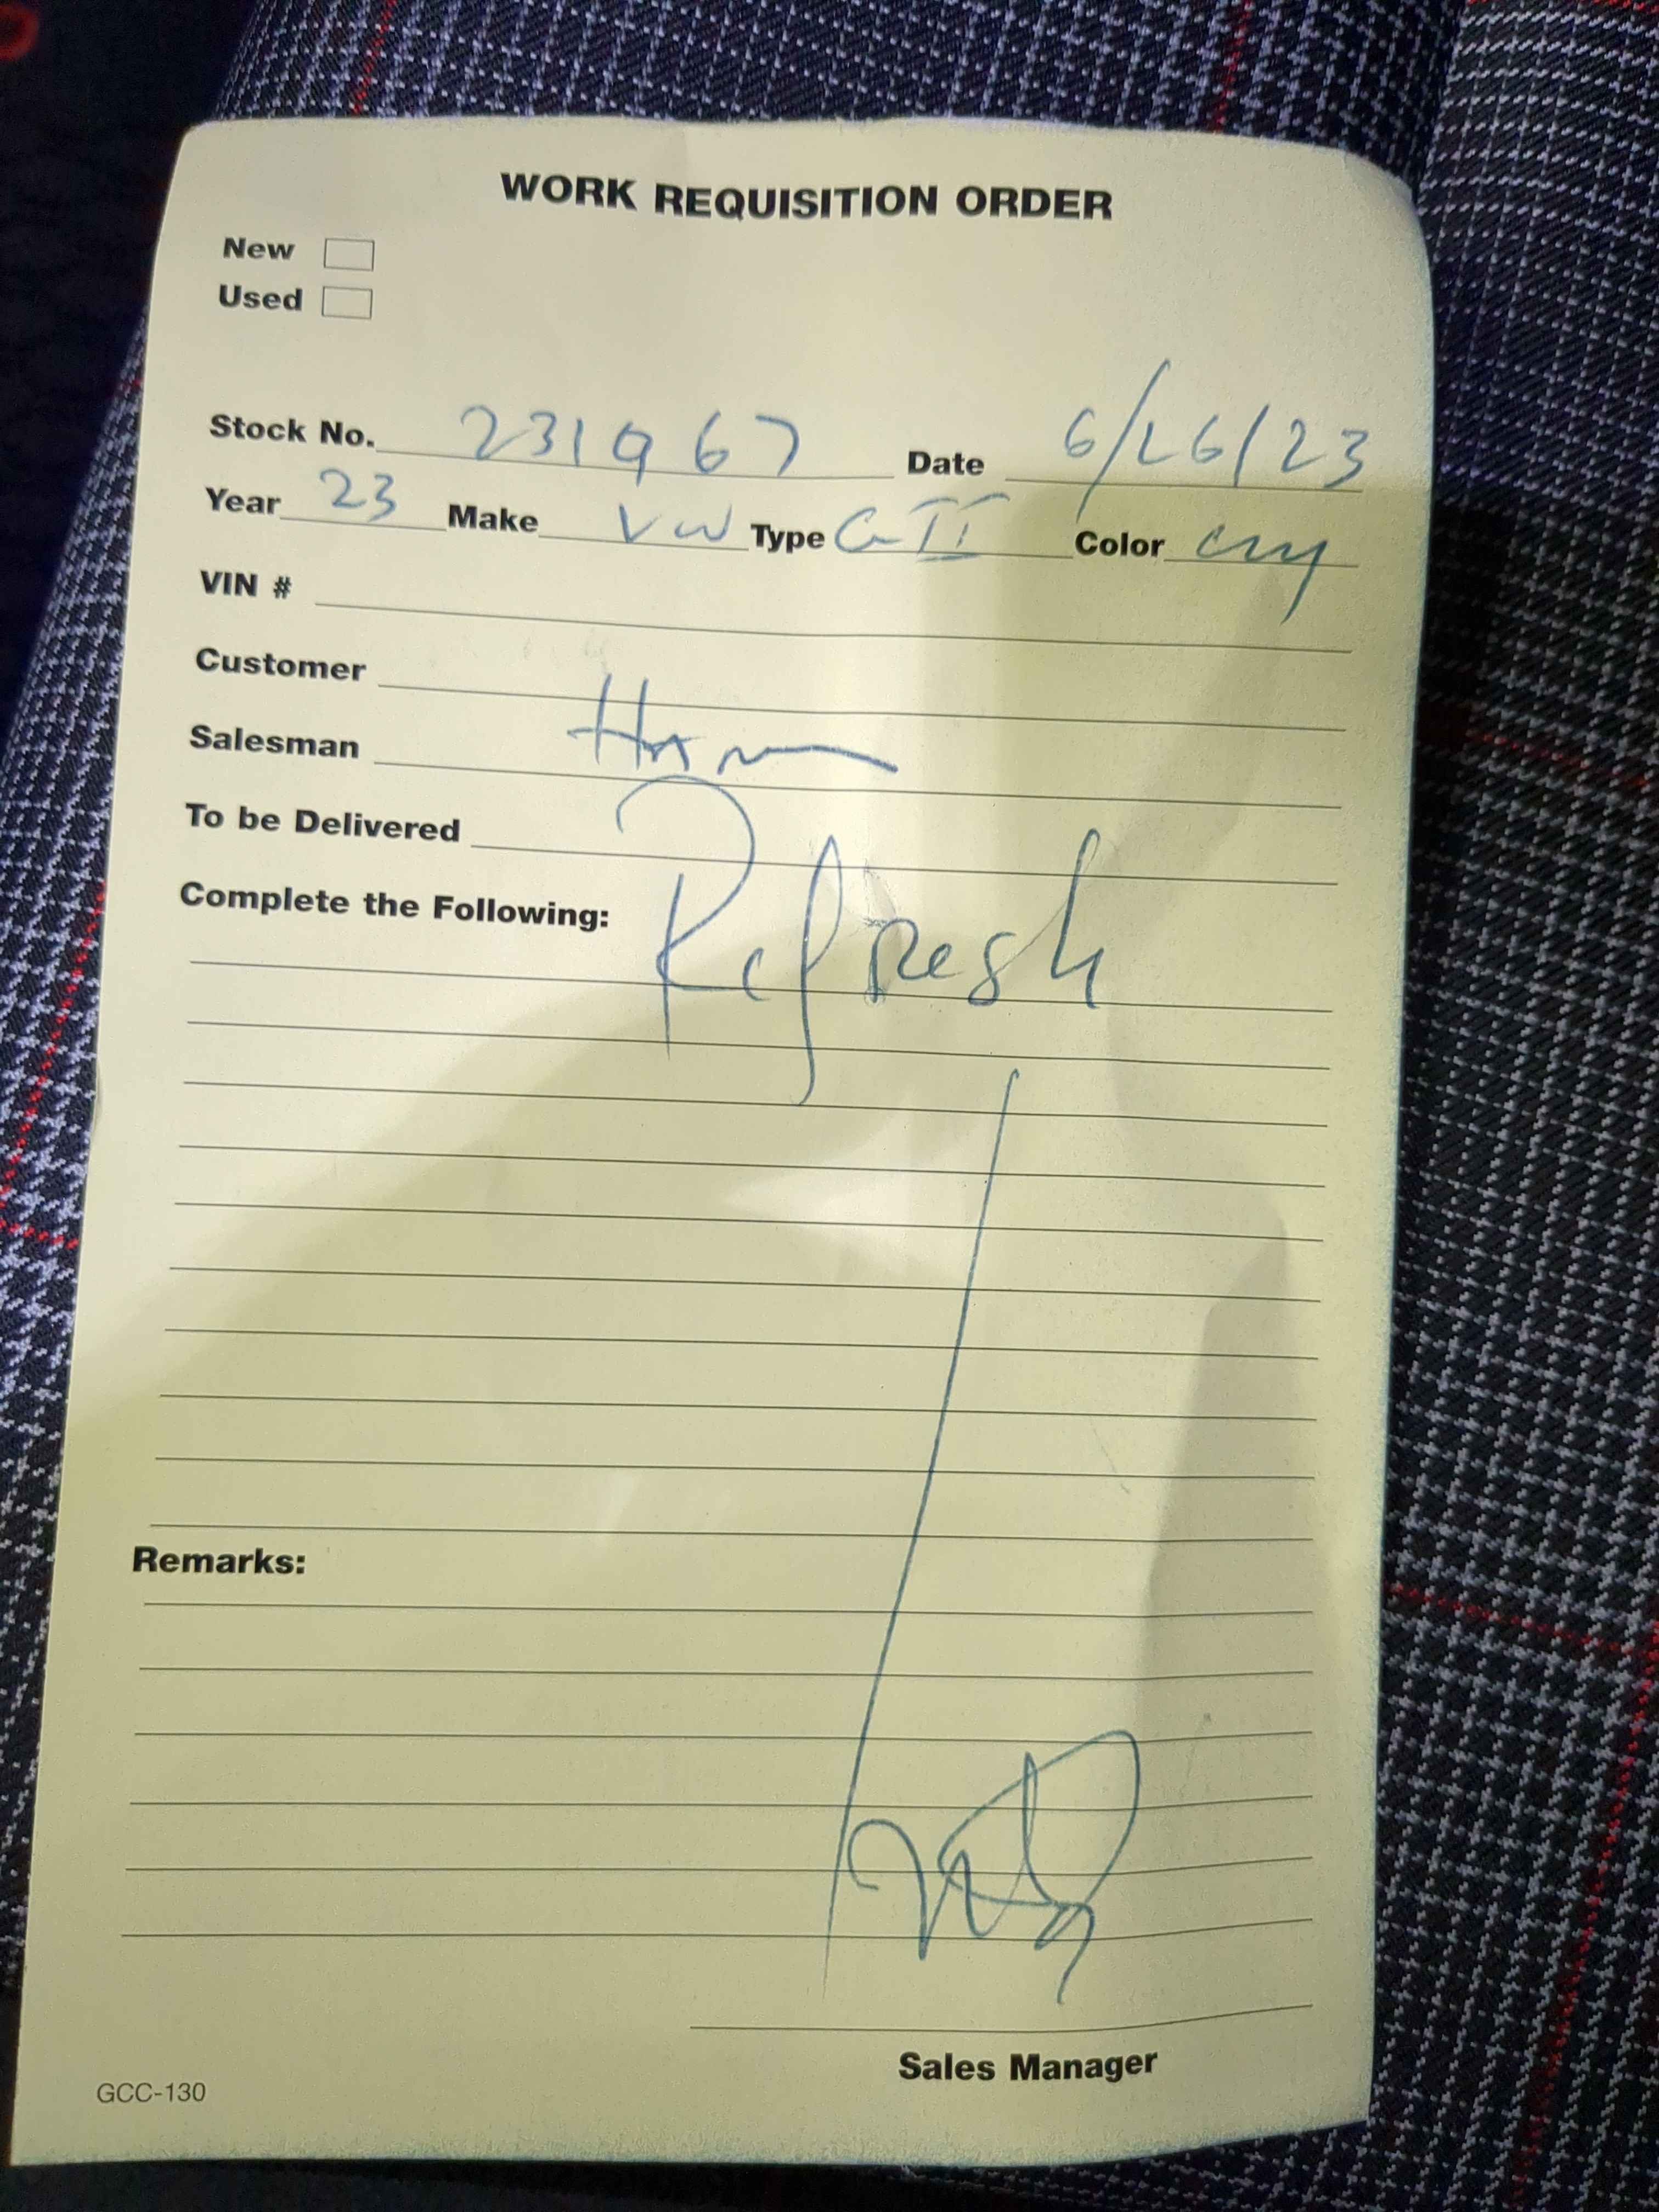 WORK REQUISITION ORDER
New
Used
Stock No. 231967 Date 6/26/23
Year 23 Make VW Type GTI Color
VIN #
Customer
Salesman
To be Delivered
Complete the Following: Refresh
Remarks:
Sales Manager
GCC-130